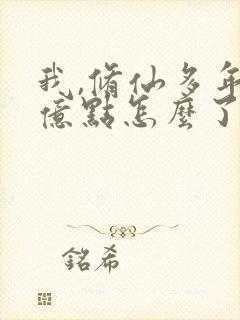 我,脩仙多年
億點怎麼了
銘希